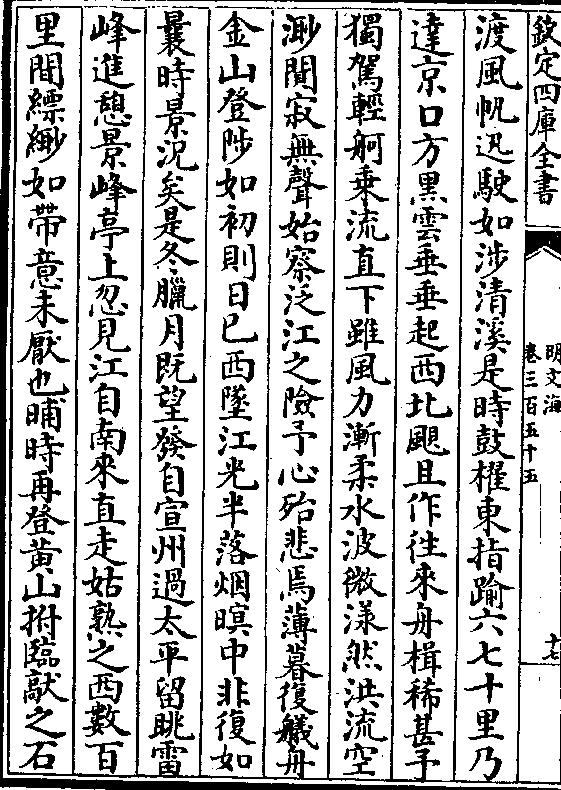 欽定四庫全書
明文海
卷三百五十五
十七
渡風帆迅駛如涉清溪是時鼓櫂東指踰六七十里乃
達京口方黒雲垂垂起西北颶且作徃來舟楫稀甚予
獨駕輕舸乗流直下雖風力漸柔水波微漾然洪流空
渺間寂無聲始察泛江之險予心殆悲焉薄暮復艤舟
金山登陟如初則日已西墜江光半落烟暝中非復如
曩時景況矣是冬臘月既望發自宣州過太平留眺雷
峰進憩景峰亭上忽見江自南來直走姑熟之西數百
里間縹緲如帶意未厭也晡時再登黄山拊臨歊之石